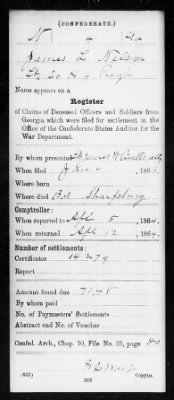 (CONFEDERATE.)
N 4 Ga
James L. Nelson
Co. H 4 Reg't
Name appears on a
Register
of Claims of Deceased Officers and Soldiers from
Georgia which were filed for settlement in the
Office of the Confederate States Auditor for the
War Department.
By whom presented
When filed 186
Where born
Where died Bat Sharpsburg
Comptroller:
When reported to Apl 5, 1864.
When returned Apl 12, 1864.
Number of settlements:
Certificates 14279
Report
Amount found due 71.48
By whom paid
No. of Paymasters' Settlements
Abstract End No. of Voucher
Confed. Arch., Chap. 10, File No. 25, page
(635)
Copyist.